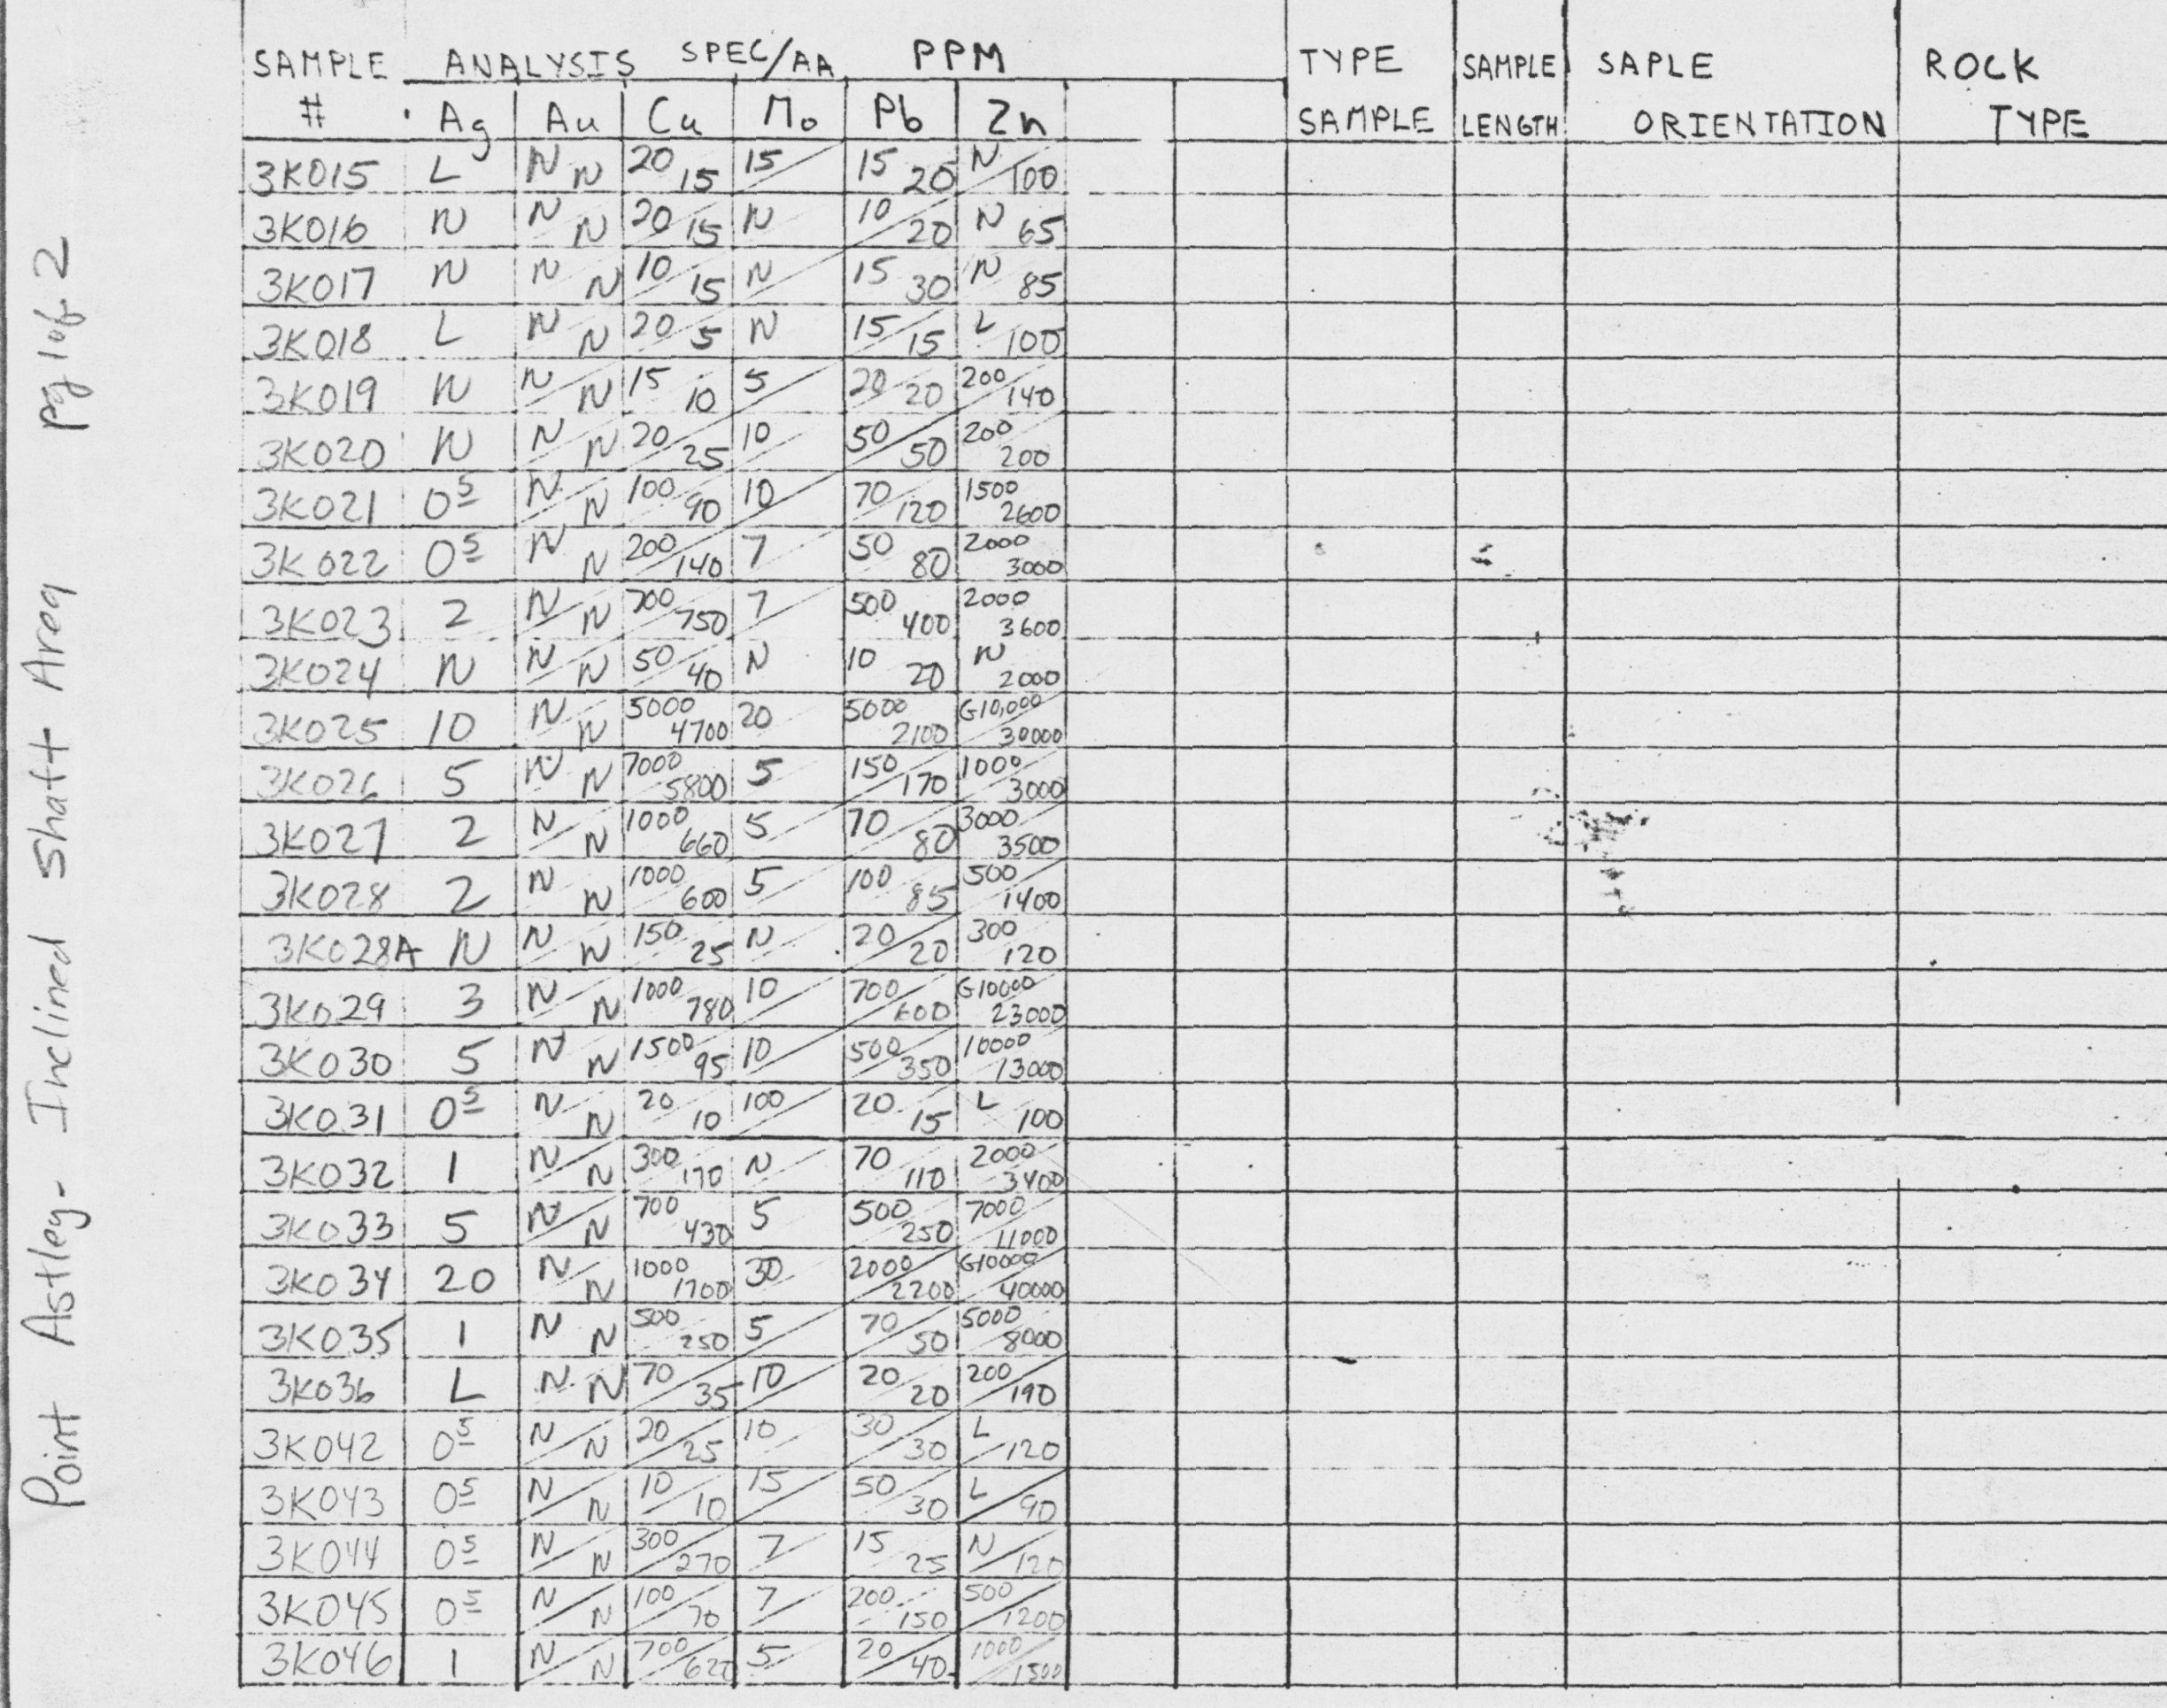 Point Astley - Inclined Shaft Area pg 1 of 2
SAMPLE ANALYSIS SPEC/AA PPM TYPE SAMPLE SAPLE ROCK
# Ag Au Cu Mo Pb Zn SAMPLE LENGTH ORIENTATION TYPE
3K015 L N/N 20/15 15/ 15/20 N/100
3K016 N N/N 20/15 N 10/20 N/65
3K017 N N/N 10/15 N 15/30 N/85
3K018 L N/N 20/5 N 15/15 L/100
3K019 N N/N 15/10 5/ 20/20 200/140
3K020 N N/N 20/25 10/ 50/50 200/200
3K021 0⁵ N/N 100/90 10/ 70/120 1500/2600
3K022 0⁵ N/N 200/140 7/ 50/80 2000/3000
3K023 2 N/N 700/750 7/ 500/400 2000/3600
3K024 N N/N 50/40 N 10/20 N/2000
3K025 10 N/N 5000/4700 20 5000/2100 G10,000/30000
3K026 5 N/N 7000/5800 5/ 150/170 1000/3000
3K027 2 N/N 1000/660 5/ 70/80 3000/3500
3K028 2 N/N 1000/600 5/ 100/85 500/1400
3K028A N N/N 150/25 N 20/20 300/120
3K029 3 N/N 1000/780 10/ 700/600 G10000/23000
3K030 5 N/N 1500/95 10/ 500/350 10000/13000
3K031 0⁵ N/N 20/10 100 20/15 L/100
3K032 1 N/N 300/170 N 70/110 2000/3400
3K033 5 N/N 700/430 5/ 500/250 7000/11000
3K034 20 N/N 1000/1700 30/ 2000/2200 G10000/40000
3K035 1 N/N 500/250 5/ 70/50 5000/8000
3K036 L N/N 70/35 10/ 20/20 200/190
3K042 0⁵ N/N 20/25 10 30/30 L/120
3K043 0⁵ N/N 10/10 15/ 50/30 L/90
3K044 0⁵ N/N 300/270 7/ 15/25 N/120
3K045 0⁵ N/N 100/70 7/ 200/150 500/1200
3K046 1 N/N 700/620 5/ 20/40 1000/1500